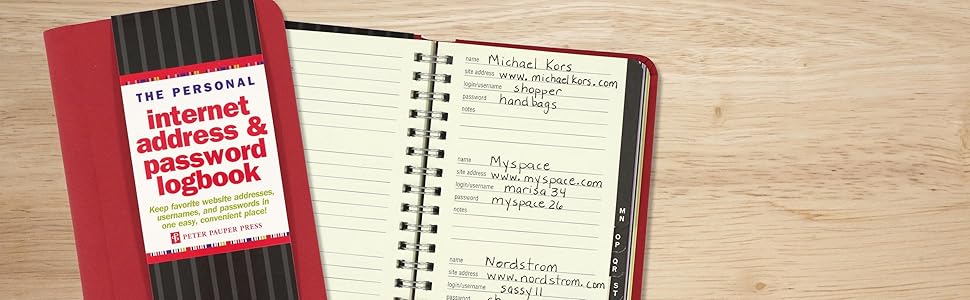 THE PERSONAL
internet
address &
password
logbook
Keep favorite website addresses,
usernames, and passwords in
one easy, convenient place!
PETER PAUPER PRESS
name Michael Kors
site address www.michaelkors.com
login/username shopper
password handbags
notes
name Myspace
site address www.myspace.com
login/username marisa 34
password myspace 26
notes
name Nordstrom
site address www.nordstrom.com
login/username sassy11
password
MN
OP
QR
ST